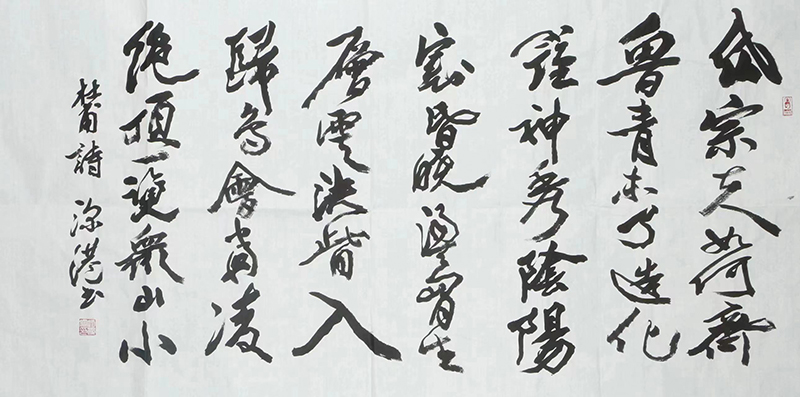 岱宗夫如何齊
魯青未了造化
鍾神秀陰陽
割昏曉盪胸生
層雲決眥入
歸鳥會當凌
絕頂一覽眾山小
杜甫詩 深港書